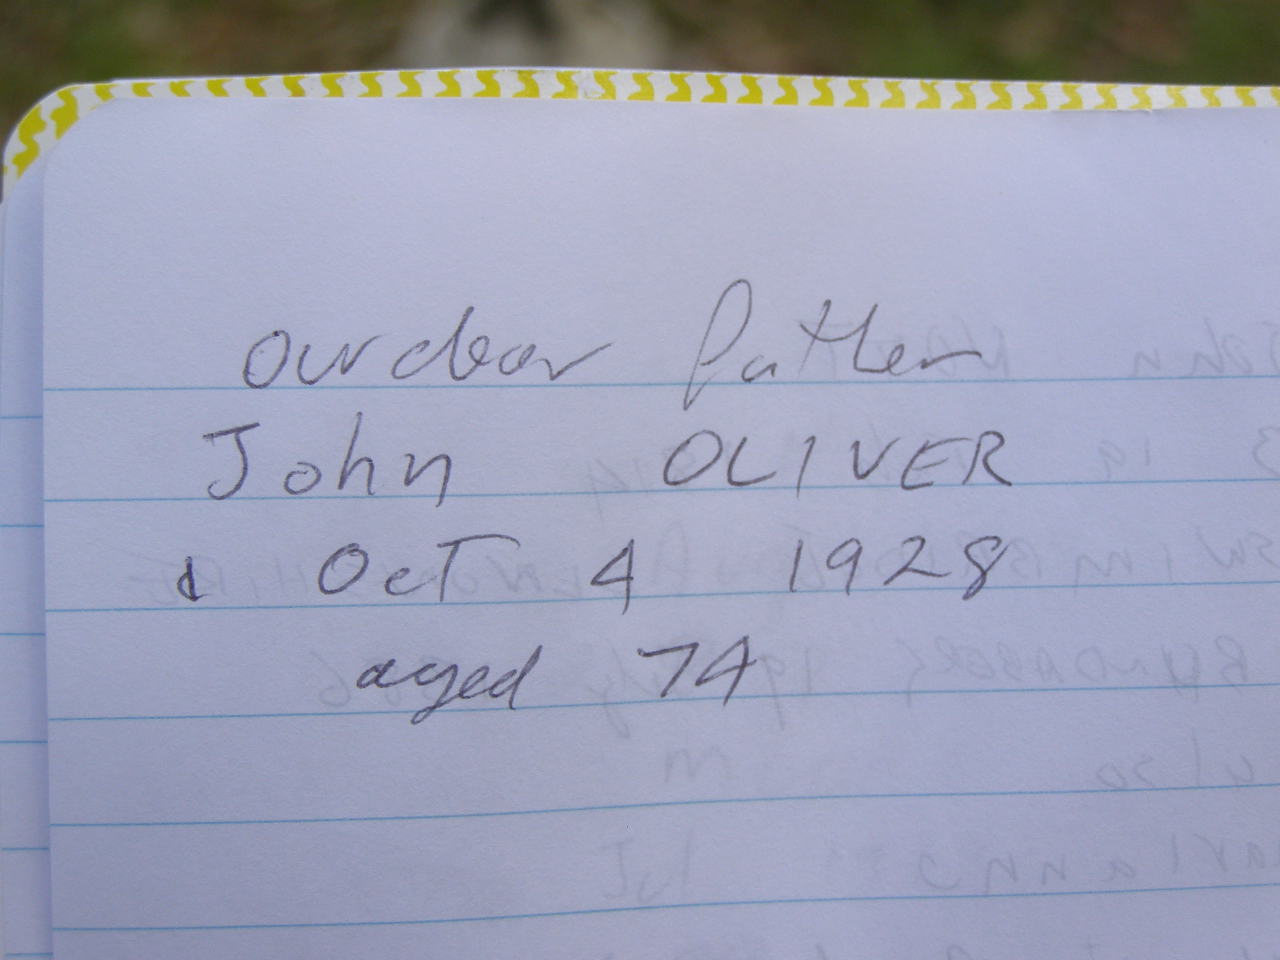 our dear father
John OLIVER
d Oct 4 1928
aged 74